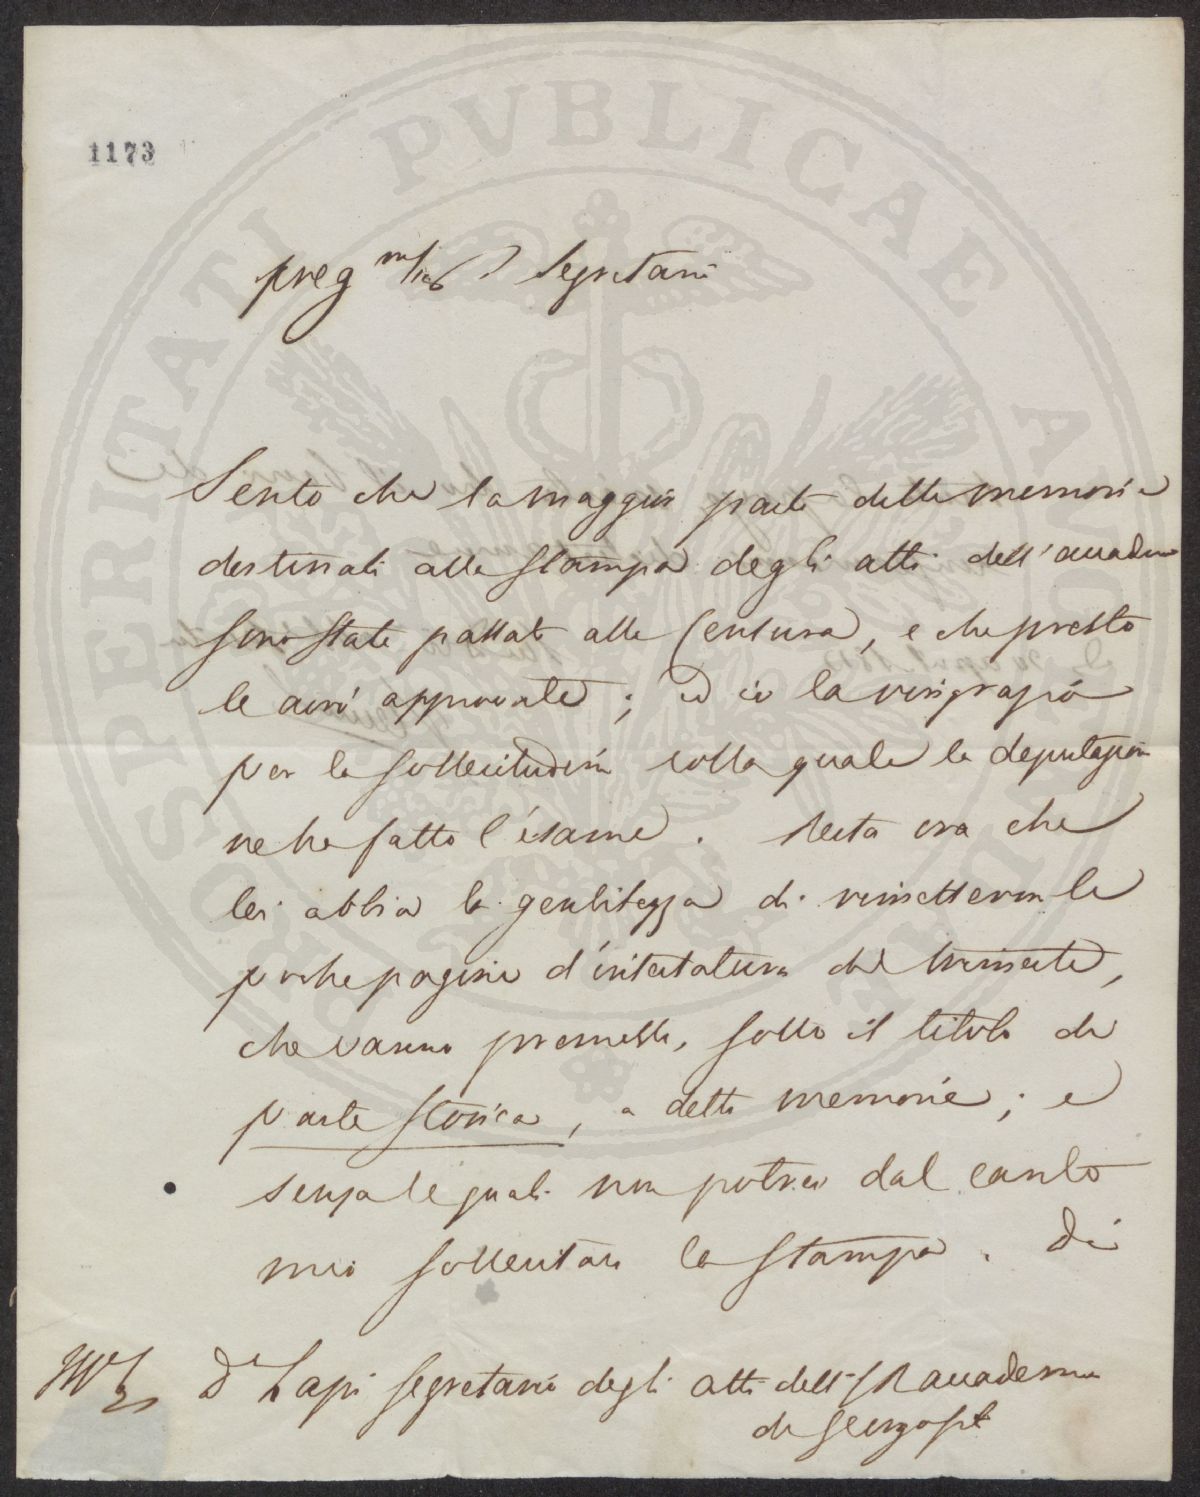 1173
PROSPERITATI PVBLICAE AVGENDAE
preg Segretario
Sento che la maggior parte delle memorie
destinati alla Stampa degli atti dell'accademia
sono state passate alla Censura, e che presto
le avrà approvate; ed io la ringrazio
per la sollecitudine colla quale la deputazion
ne ha fatto l'esame. Resta ora che
lei abbia la gentilezza di rimettermi le
poche pagine d'intestatura del trimestre,
che vanno premesse, sotto il titolo di
parte storica, a dette memorie; e
senza le quali non potrei dal canto
mio sollecitare la stampa. Di
D Lapi Segretario degli atti dell' accademia
de Georgofili